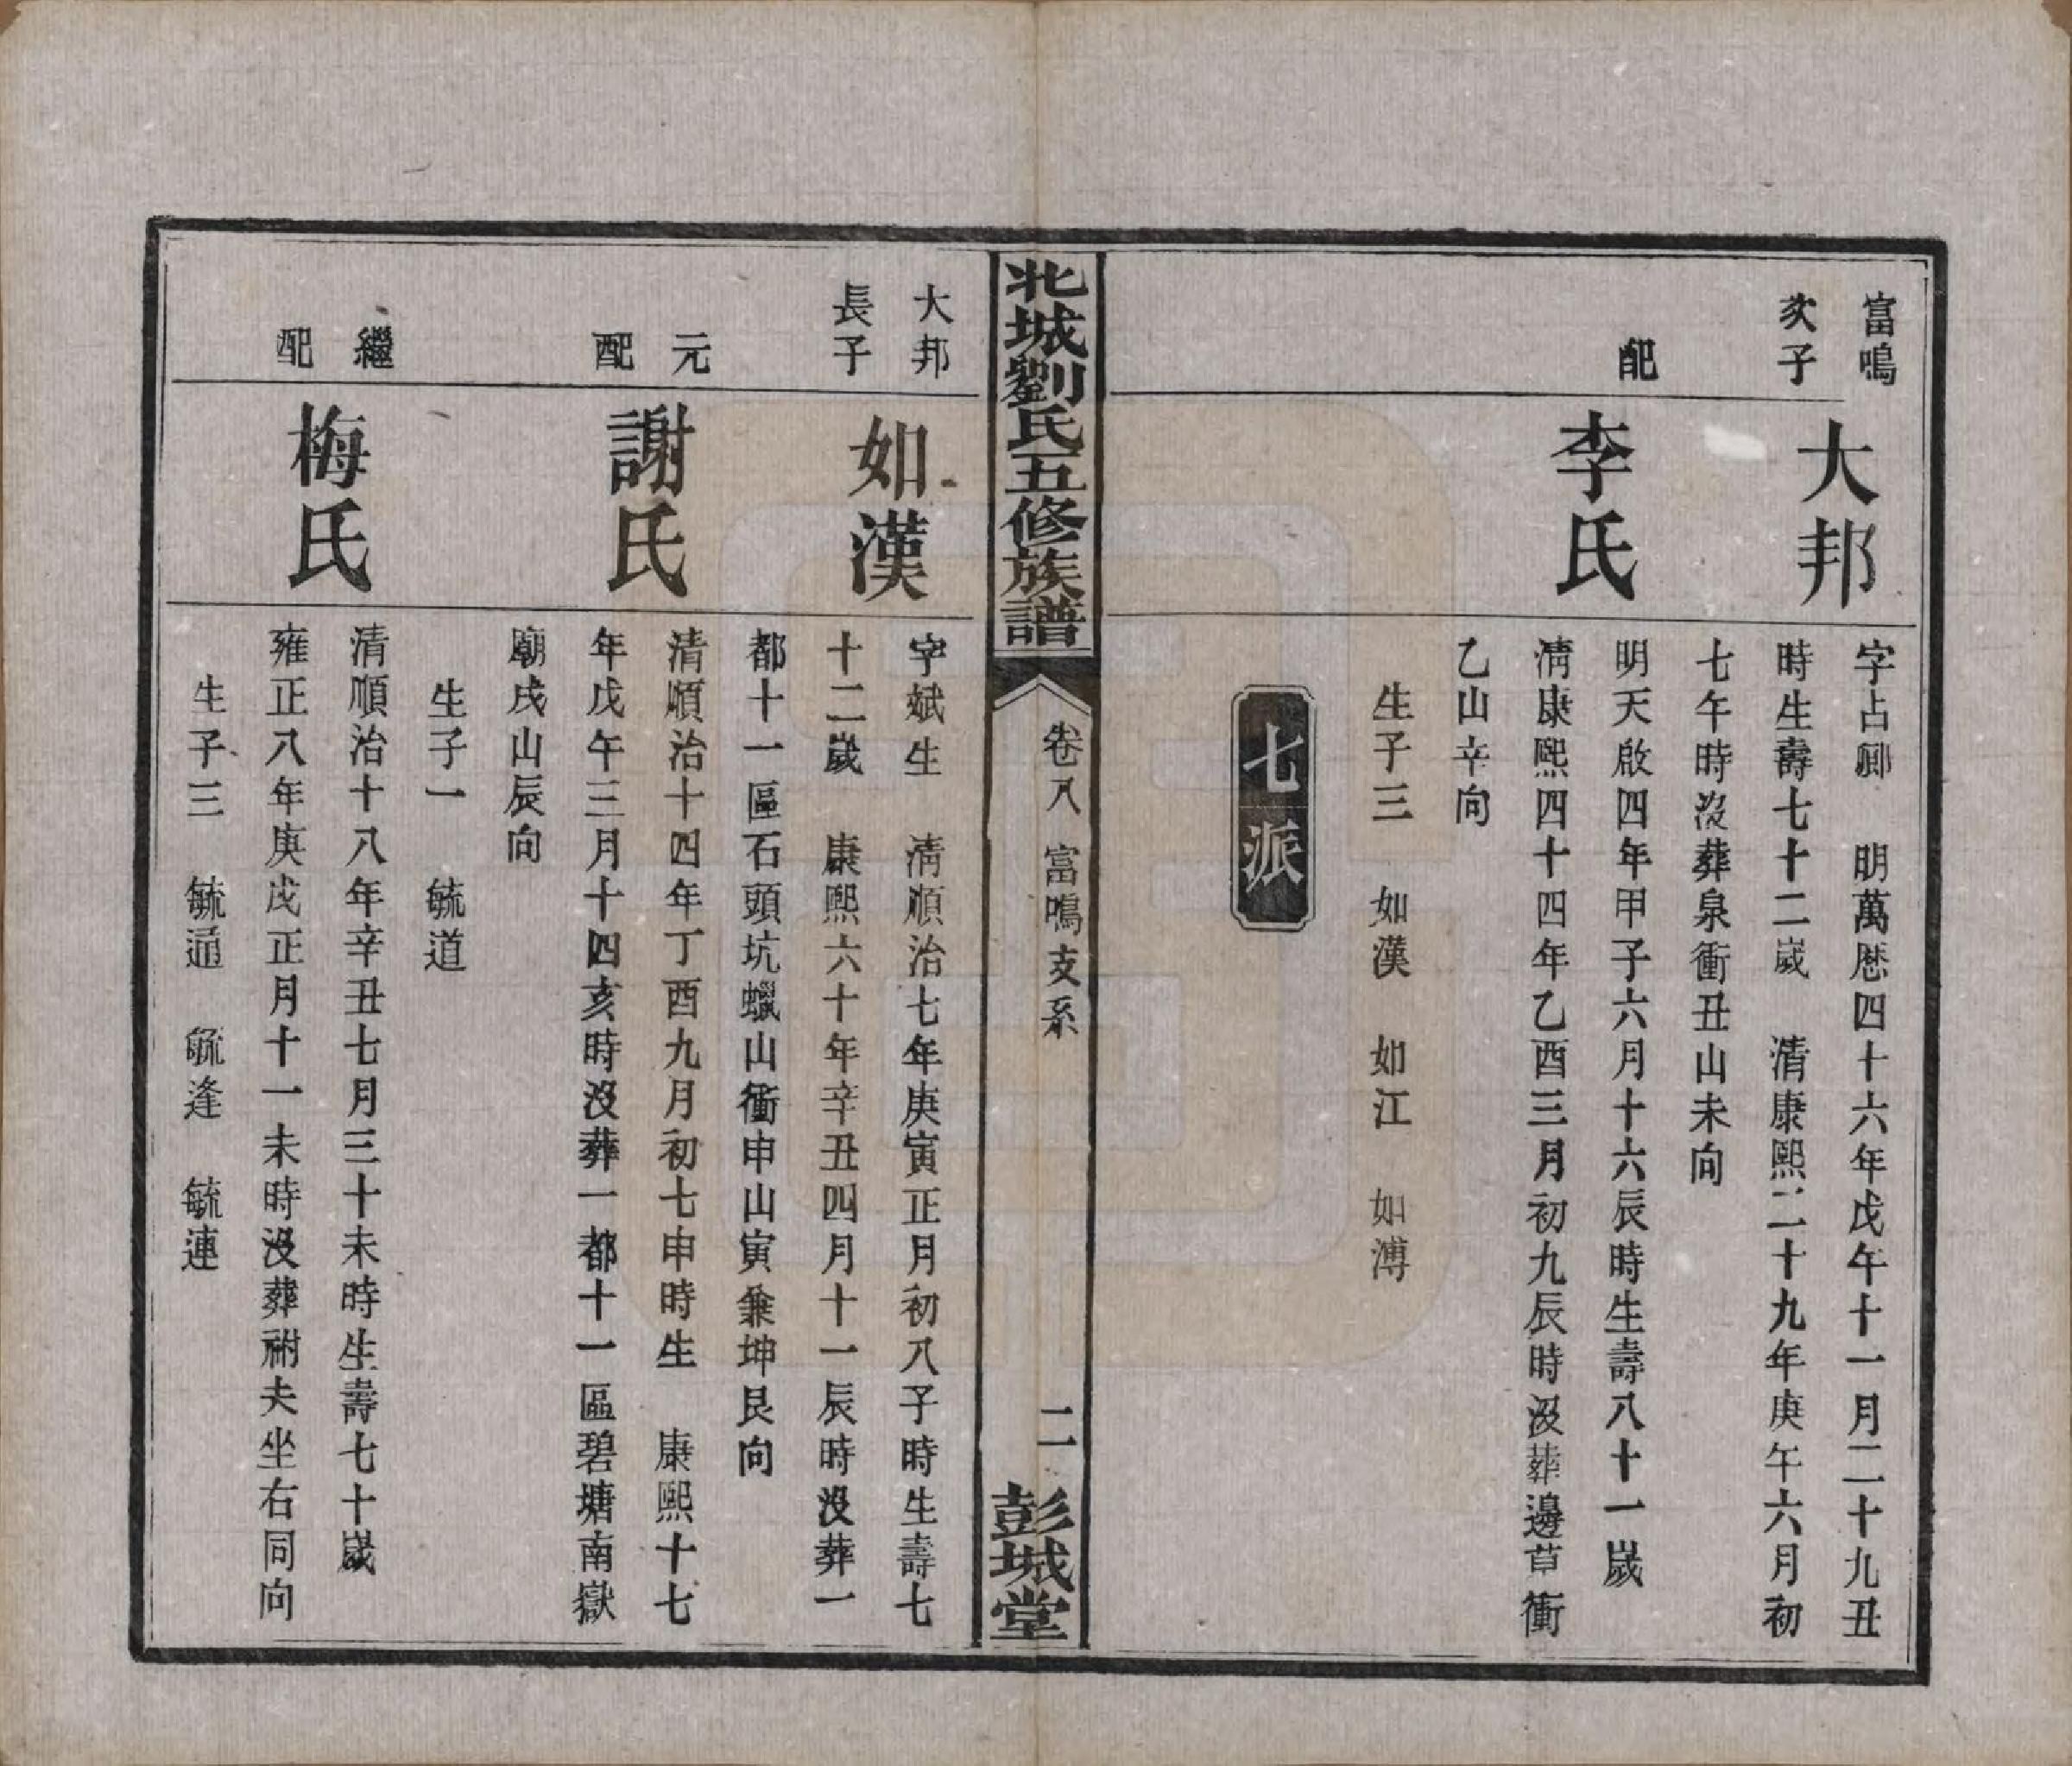 富鳴
次子
大邦
字占卿　明萬厯四十六年戊午十一月二十九丑
時生壽七十二歲　清康熙二十九年庚午六月初
七午時沒葬泉衝丑山未向
配
李氏
明天啟四年甲子六月十六辰時生壽八十一歲
清康熙四十四年乙酉三月初九辰時沒葬邊草衝
乙山辛向
生子三　如漢　如江　如溥
七派
北城劉氏五修族譜
卷八　富鳴支系
二
彭城堂
大邦
長子
如漢
字斌生　清順治七年庚寅正月初八子時生壽七
十二歲　康熙六十年辛丑四月十一辰時沒葬一
都十一區石頭坑蠟山衝申山寅兼坤艮向
元
配
謝氏
清順治十四年丁酉九月初七申時生　康熙十七
年戊午三月十四亥時沒葬一都十一區碧塘南嶽
廟戌山辰向
生子一　毓道
繼
配
梅氏
清順治十八年辛丑七月三十未時生壽七十歲
雍正八年庚戌正月十一未時沒葬祔夫坐右同向
生子三　毓通　毓逢　毓連